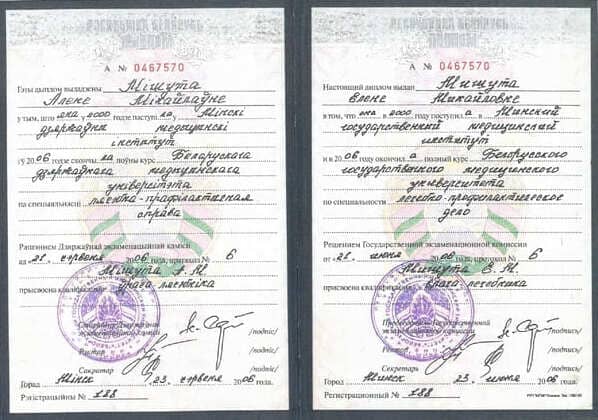 А № 0467570
Гэты дыплом выдадзены Мішута
Алене Міхайлаўне
у тым, што яна у 2000 годзе паступіла у Мінскі
дзяржаўны медыцынскі
інстытут
і ў 2006 годзе скончыла поўны курс Беларускага
дзяржаўнага медыцынскага
універсітэта
па спецыяльнасці лячэбна-прафілактычная
справа
Рашэннем Дзяржаўнай экзаменацыйнай камісіі
ад 21 чэрвеня 2006 года, пратакол № 6
Мішута А. М.
прысвоена кваліфікацыя урача лячэбніка
Старшыня Дзяржаўнай
экзаменацыйнай камісіі /подпіс/
Рэктар /подпіс/
Сакратар /подпіс/
Горад Мінск 23 чэрвеня 2006 года.
Рэгістрацыйны № 188
А № 0467570
Настоящий диплом выдан Мишута
Елене Михайловне
в том, что она в 2000 году поступила в Минский
государственный медицинский
институт
и в 2006 году окончила полный курс Белорусского
государственного медицинского
университета
по специальности лечебно-профилактическое
дело
Решением Государственной экзаменационной комиссии
от «21 июня 2006 года, протокол № 6
Мишута Е. М.
присвоена квалификация врача лечебника
Председатель Государственной
экзаменационной комиссии /подпись/
Ректор /подпись/
Секретарь /подпись/
Город Минск 23 июня 2006 года.
Регистрационный № 188